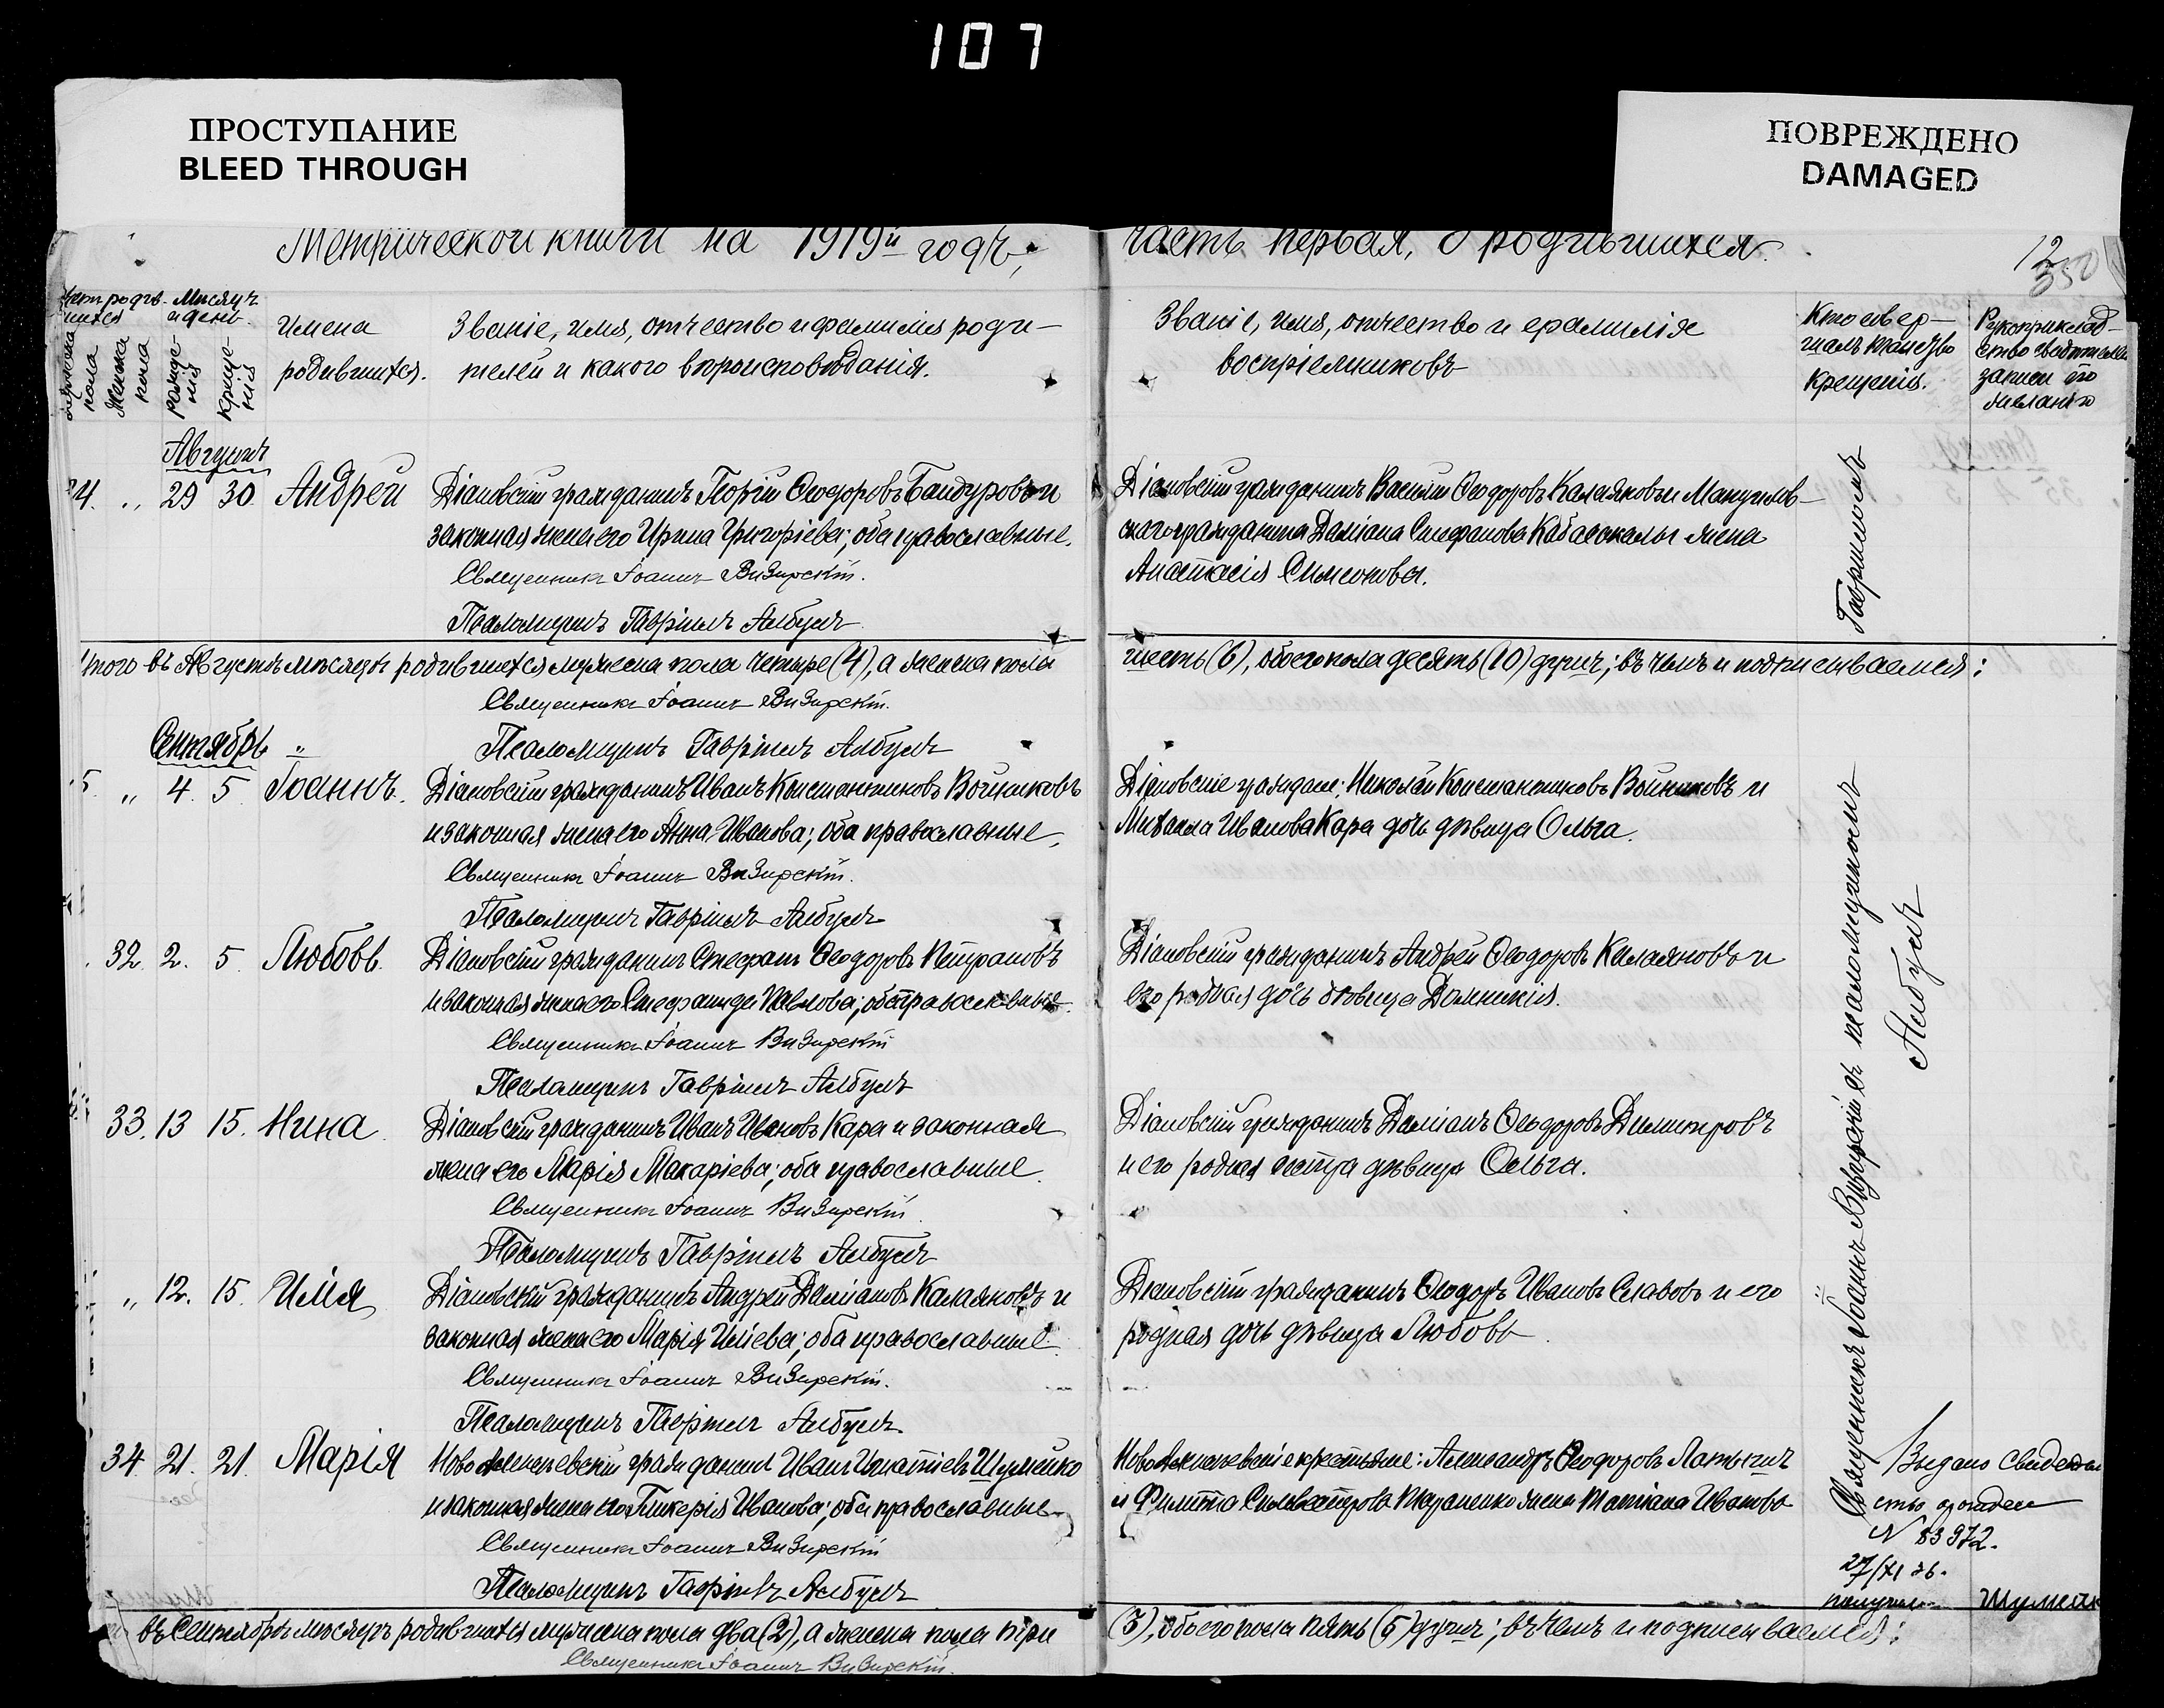 107
ПРОСТУПАНИЕ
BLEED THROUGH
ПОВРЕЖДЕНО
DAMAGED
Метрической книги на 1919й годъ,
часть первая, о родившихся.
12
350
Мѣсяцъ и день.
мужеска пола
женска пола
рожденія
крещенія
Имена
родившихся.
Званіе, имя, отчество и фамилія роди-
телей и какого вѣроисповѣданія.
Званіе, имя, отчество и фамилія
воспріемниковъ
Кто совер-
шалъ таинство
крещенія.
Рукоприклад-
ство свидѣтелей
записи по
желанію
Августъ
24. „ 29 30. Андрей
Діановскій гражданинъ Георгій Ѳеодоровъ Бандуровъ и
законная жена его Ирина Григоріева; оба православные.
Священникъ Іоаннъ Визирскій.
Псаломщикъ Гавріилъ Албулъ
Діановскій гражданинъ Василій Ѳеодоровъ Калаяновъ и
гражданина Даміана Стефанова жена
Анастасія Симеонова.
Гавріиломъ
Итого въ Августѣ мѣсяцѣ родившихся мужеска пола четыре (4), а женска пола
шесть (6), обоего пола десять (10) душъ; въ чемъ и подписываемся:
Священникъ Іоаннъ Визирскій.
Псаломщикъ Гавріилъ Албулъ
Сентябрь „
5. „ 4. 5. Іоаннъ.
Діановскій гражданинъ Иванъ Константиновъ Войниковъ
и законная жена его Анна Иванова; оба православные.
Священникъ Іоаннъ Визирскій.
Псаломщикъ Гавріилъ Албулъ
Діановскіе граждане: Николай Константиновъ Войниковъ и
Михаила Иванова Кара дочь дѣвица Ольга.
32. 2. 5. Любовь.
Діановскій гражданинъ Стефанъ Ѳеодоровъ Петрановъ
и законная жена его Стефанида Павлова; оба православные.
Священникъ Іоаннъ Визирскій
Псаломщикъ Гавріилъ Албулъ
Діановскій гражданинъ Андрей Ѳеодоровъ Калаяновъ и
его родная дочь дѣвица Домникія.
33. 13 15. Нина
Діановскій гражданинъ Иванъ Ивановъ Кара и законная
жена его Марія Макаріева; оба православные.
Священникъ Іоаннъ Визирскій.
Псаломщикъ Гавріилъ Албулъ
Діановскій гражданинъ Даміанъ Ѳеодоровъ Димитровъ
и его родная сестра дѣвица Ольга.
„ 12. 15. Илія
Діановскій гражданинъ Андрей Даміановъ Калаяновъ и
законная жена его Марія Иліева; оба православные.
Священникъ Іоаннъ Визирскій.
Псаломщикъ Гавріилъ Албулъ
Діановскій гражданинъ Ѳеодоръ Ивановъ Славовъ и его
родная дочь дѣвица Любовь.
34. 21. 21. Марія
Ново Алексѣевскій гражданинъ Иванъ Игнатіевъ Шумейко
и законная жена его Гликерія Иванова; оба православные
Священникъ Іоаннъ Визирскій
Псаломщикъ Гавріилъ Албулъ
Ново Алексѣевскіе крестьяне: Александръ Ѳеодоровъ
и Филиппа Сильвестрова жена Татіана Иванова
Священникъ Іоаннъ Визирскій съ псаломщикомъ
Албулъ
Выдано свидетель
ство о рожден
N 83972.
27/XI 36.
получил
Шумейк
въ Сентябрѣ мѣсяцѣ родившихся мужеска пола два (2), а женска пола три
(3), обоего пола пять (5) душъ; въ чемъ и подписываемся:
Священникъ Іоаннъ Визирскій.